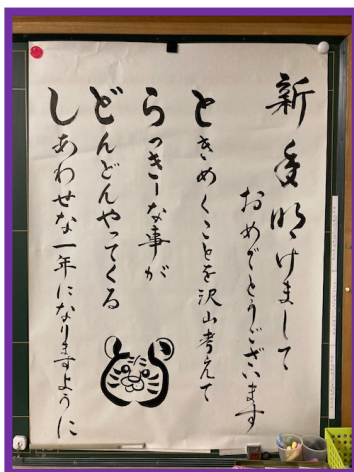 新年明けまして
おめでとうございます
ときめくことを沢山考えて
らっきーな事が
どんどんやってくる
しあわせな一年になりますように